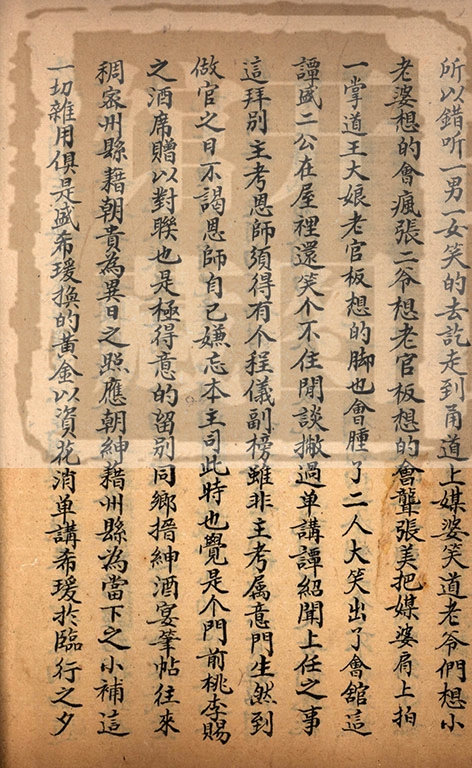 所以錯听一男一女笑的去訖走到甬道上媒婆笑道老爷們想小
老婆想的會瘋張二爷想老官板想的會聾張美把媒婆肩上拍
一掌道王大娘老官板想的脚也會腫了二人大笑出了會舘這
譚盛二公在屋裡還笑个不住閒談撇過单講譚紹聞上任之事
這拜別主考恩師須得有个程儀副榜雖非主考属意門生然到
做官之日不謁恩師自己嫌忘本主司此時也覺是个門前桃李賜
之酒席贈以對聮也是極得意的留別同鄉搢紳酒宴筆帖往來
稠宻州縣藉朝貴為異日之照應朝紳藉州縣為當下之小補這
一切雜用俱是盛希瑗换的黄金以資花消单講希瑗於臨行之夕